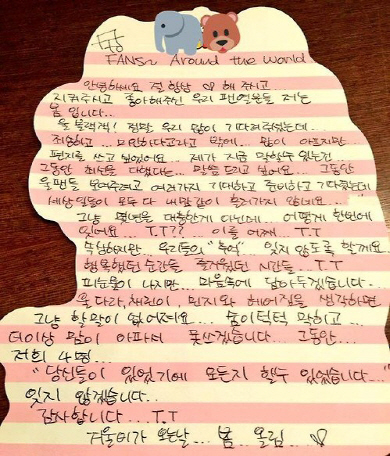 FANS~ Around the world
안녕하세요 절 항상 ♡ 해 주시고
지켜주시고 좋아해주신 우리 팬여러분들 저는
봄 입니다...
울 블랙잭! 정말 우리 많이 기다려주셨는데...
죄송하고... 미안하다라고 밖에... 맘이 아프지만
편지를 쓰고 있었어요... 제가 지금 말할수 있는건
그동안 최선을 다했다는... 말을 드리고 싶어요... 그동안
울팬들 보여주려고 여러가지 기대하고 준비하고 기다렸는데
세상일들이 모두 다 내맘같이 흘러가지 않네요...
그냥 몇년을 대충한게 아닌데... 어떻게 한번에
잊어요... T.T?? ... 이를 어째... T.T
속상하지만 우리들의 "추억" 잊지 않도록 할께요
행복했던 순간들 즐거웠던 시간들... T.T
피눈물이 나지만... 마음속에 담아두겠습니다...
울 다라, 채린이, 민지와 헤어짐을 생각하면
그냥 할말이 없어져요... 숨이턱턱 막히고...
더이상 맘이 아파서 못쓰겠습니다... 그동안...
저희 4명...
"당신들이 있었기에 모든지 할수 있었습니다..."
잊지 않겠습니다..
감사합니다... T.T
겨울비가 오는날... 봄 올림... ♡